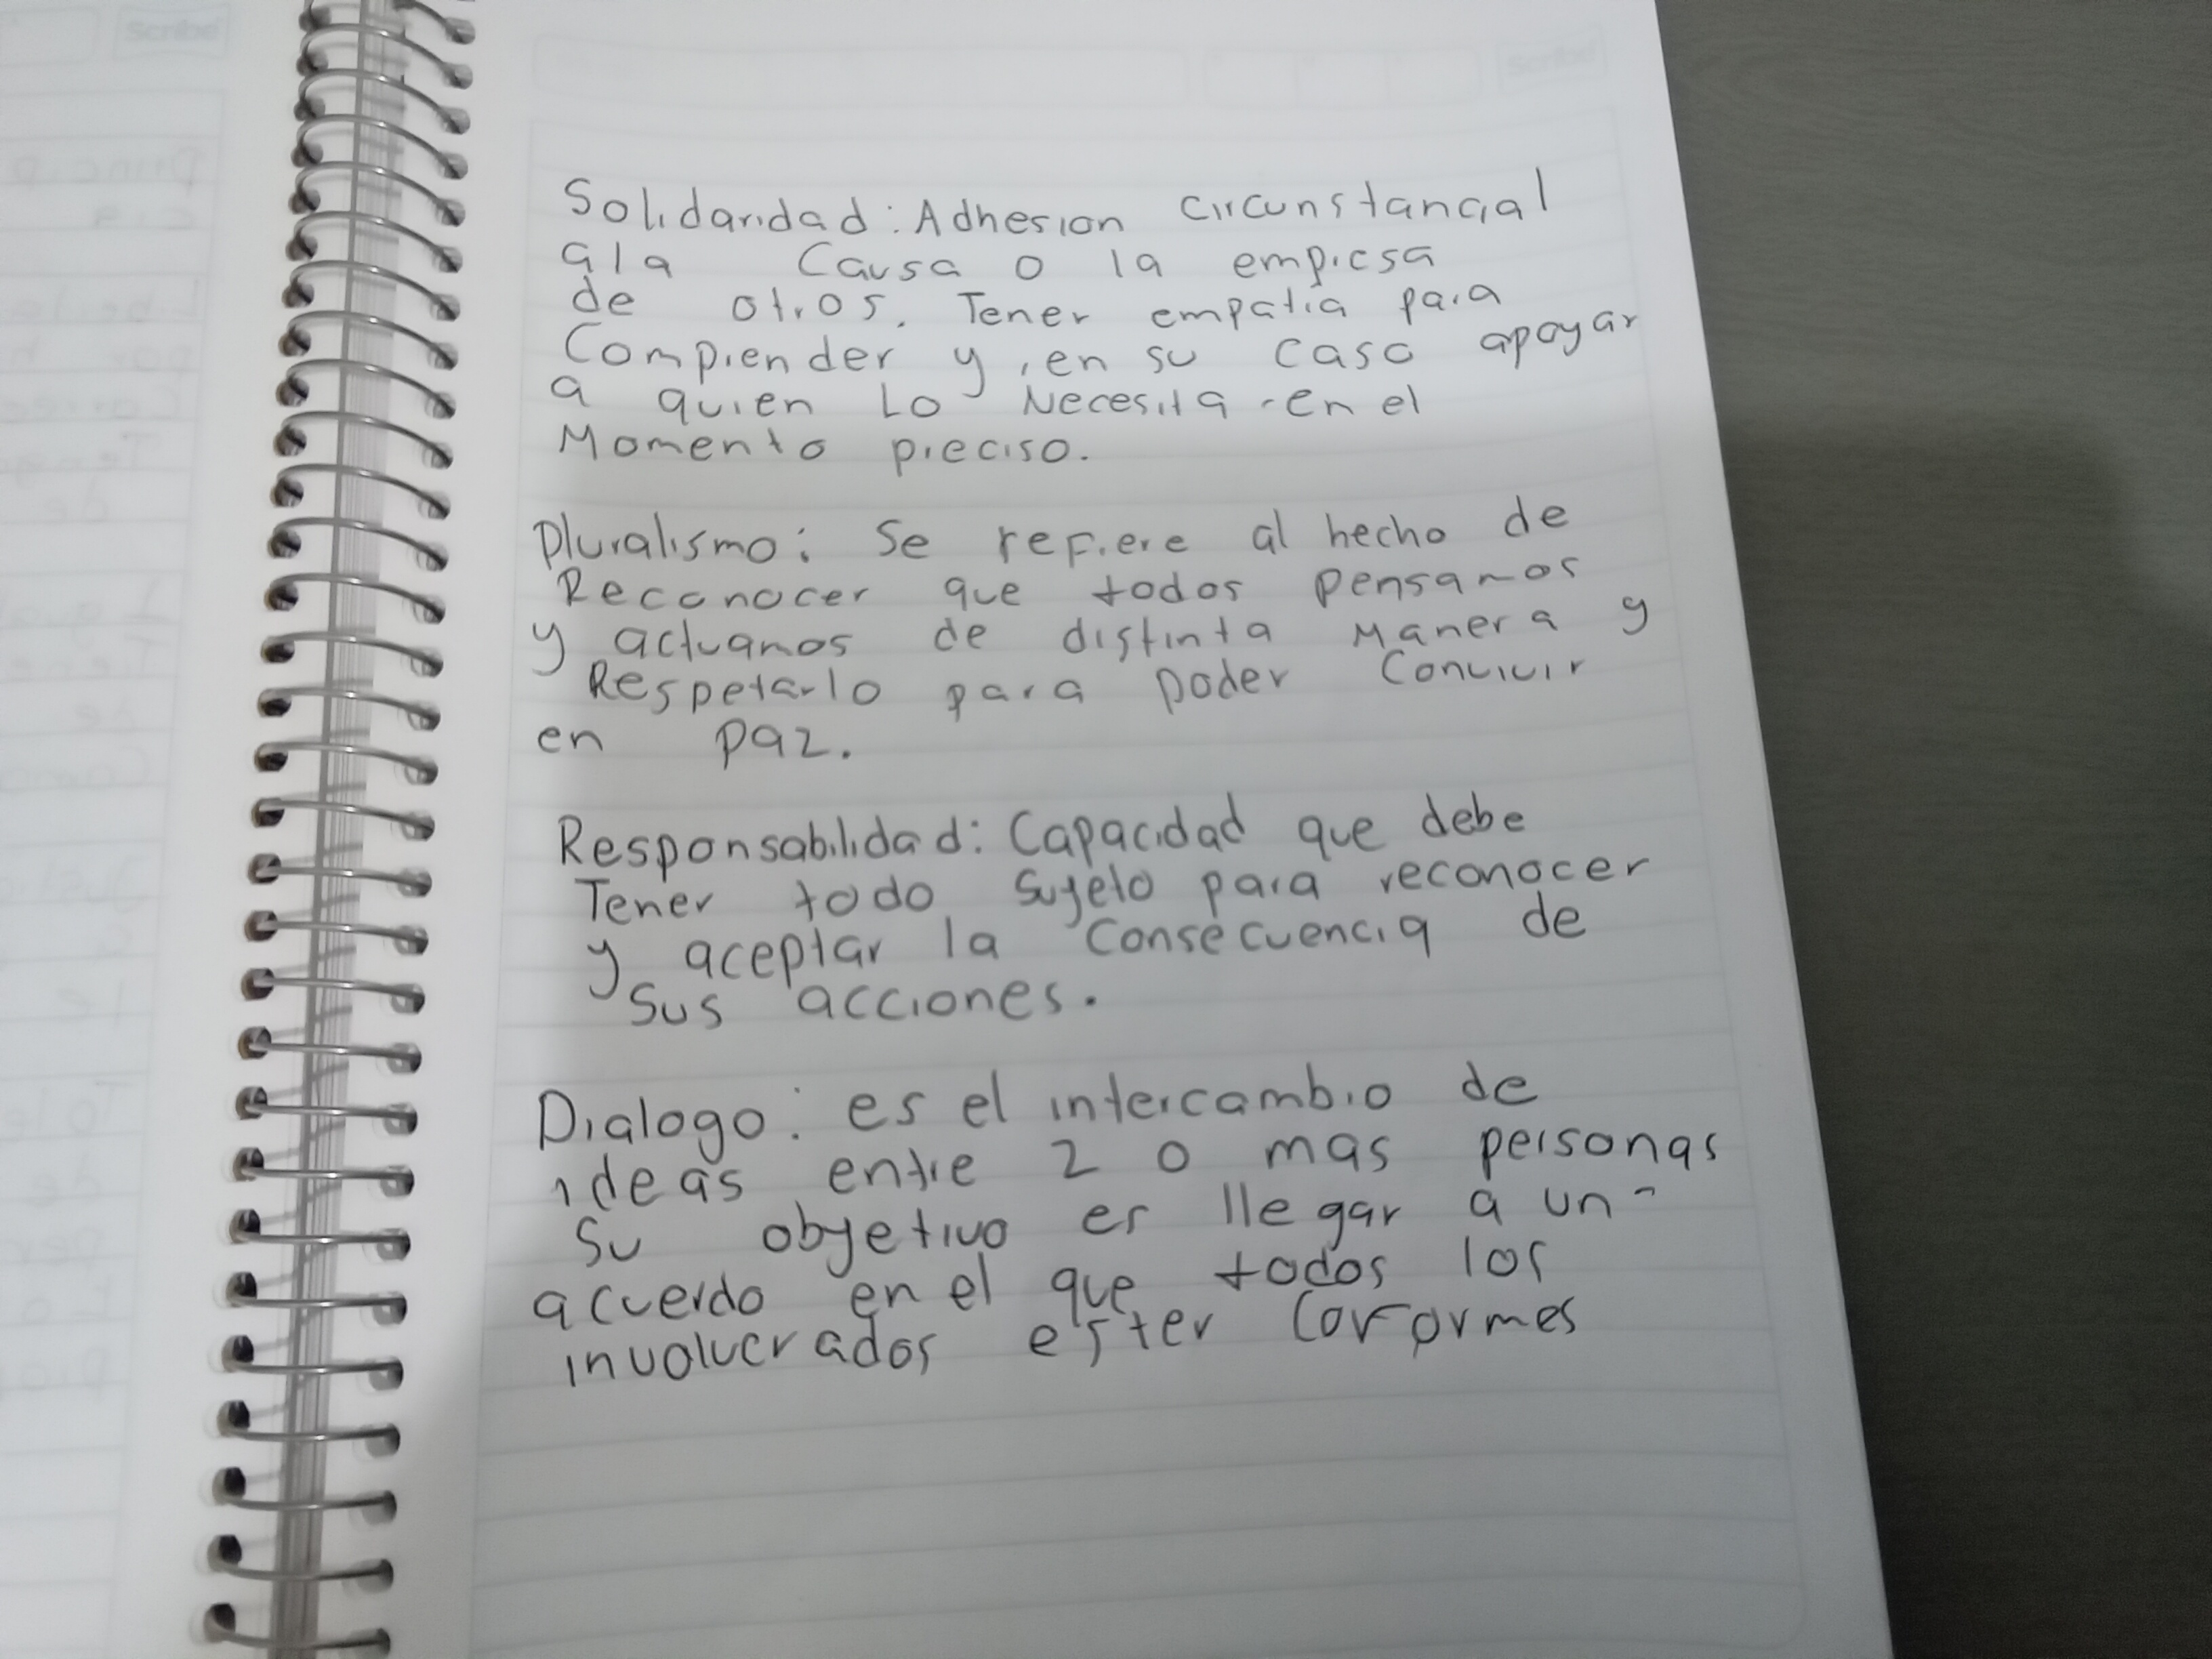 Scribe
Scribe
Solidaridad: Adhesion circunstancial
a la Causa o la empresa
de otros. Tener empatia para
Comprender y, en su caso apoyar
a quien Lo Necesita en el
Momento preciso.
Pluralismo: Se refiere al hecho de
Reconocer que todos pensamos
y actuamos de distinta Manera y
Respetarlo para poder Convivir
en paz.
Responsabilidad: Capacidad que debe
Tener todo sujeto para reconocer
y aceptar la Consecuencia de
Sus acciones.
Dialogo: es el intercambio de
ideas entre 2 o mas personas
Su objetivo es llegar a un
acuerdo en el que todos los
involucrados ester Conformes